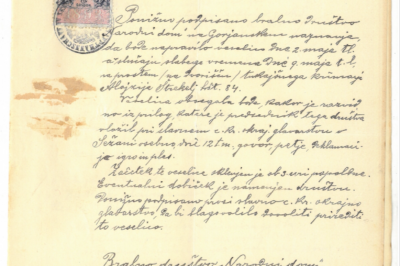 Ponižno podpisano bralno društvo
Narodni dom na Gorjanskem naznanja,
da bože napravilo veselico dne 2. maja t.l.
v slučaju slabega vremena dne 9. maja t.l.
na prostem /na dvorišču/ tukajšnjega krčmarja
Alojzija hšt. 84.
Veselica obsegala bože, kakor je razvid
no iz prilog, katere je predsednik tega društva
vložil pri slavnem c. kr. okraj. glavarstvu v
Sežani osebno dne 12 t.m. govor, petje, deklamaci
jo igro, ples.
Začetek te veselice ob 3 uri popoldne.
Eventualni dobiček je namenjen društvu.
Ponižno podpisano prosi slavno c. kr. okrajno
glavarstvo, da bi blagovolilo dovoliti prirediti
to veselico.
Bralno društvo "Narodni dom"